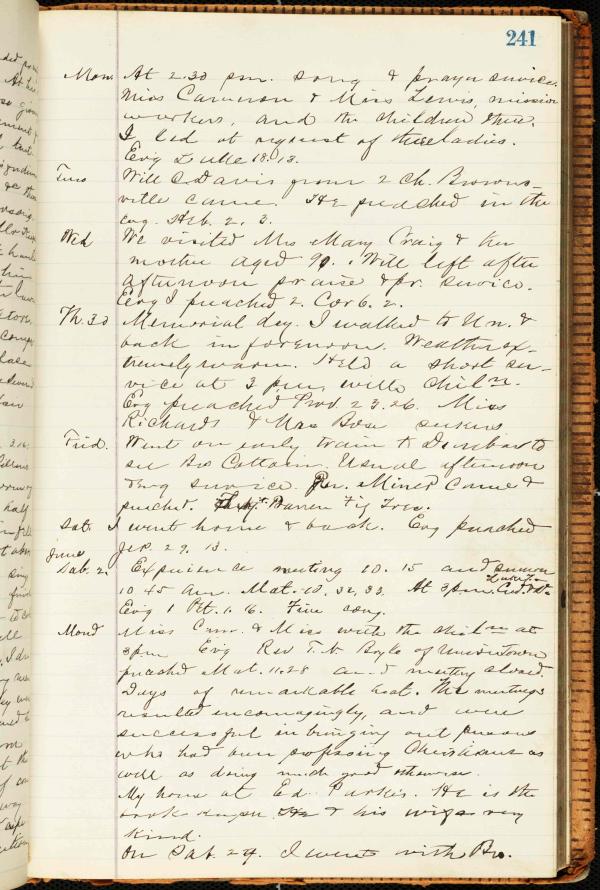 241
Mon At 2.30 pm. song & prayer service.
Miss Cameron & Miss Lewis, mission
workers, and the children there.
I led at request of these ladies.
Evg Luke 18.13.
Tues Will C. Davis from 2 Ch. Browns-
ville came. He preached in the
evg. Heb. 2, 3.
Wed We visited Mrs Mary Craig & her
mother aged 90. Will left after
afternoon praise & pr. service.
Evg I preached 2. Cor 6. 2.
Th. 30 Memorial day. I walked to Un. &
back in forenoon. Weather ex-
tremely warm. Held a short ser-
vice at 3 p.m. with chiln.
Evg preached Prov. 23.26. Miss
Richards & Mrs Bose
Frid. Went on early train to Dunbar to
see Bro Cottom. Usual afternoon
& evg service. Rev. Miner came &
preached. Barren Fig Tree.
Sat. I went home & back. Evg preached
Jer. 29. 13.
June
Sab. 2. Experience meeting 10.15 and sermon
10 45 am. Mat. 10. 32, 33. At 3 p.m.
Evg 1 Pet. 1. 6. Fine cong.
Mond Miss Cam. & Miss with the chiln at
3 pm Evg Rev T. N. Boyle of Uniontown
preached Mat. 11.28 and meeting closed.
Days of remarkable heat. The meetings
resulted encouragingly, and were
successful in bringing out persons
who had been professing Christians as
well as doing much good otherwise.
My home at Ed. Parkis. He is the
book keeper He & his wife very
kind.
On Sab. 24. I went with Bro.